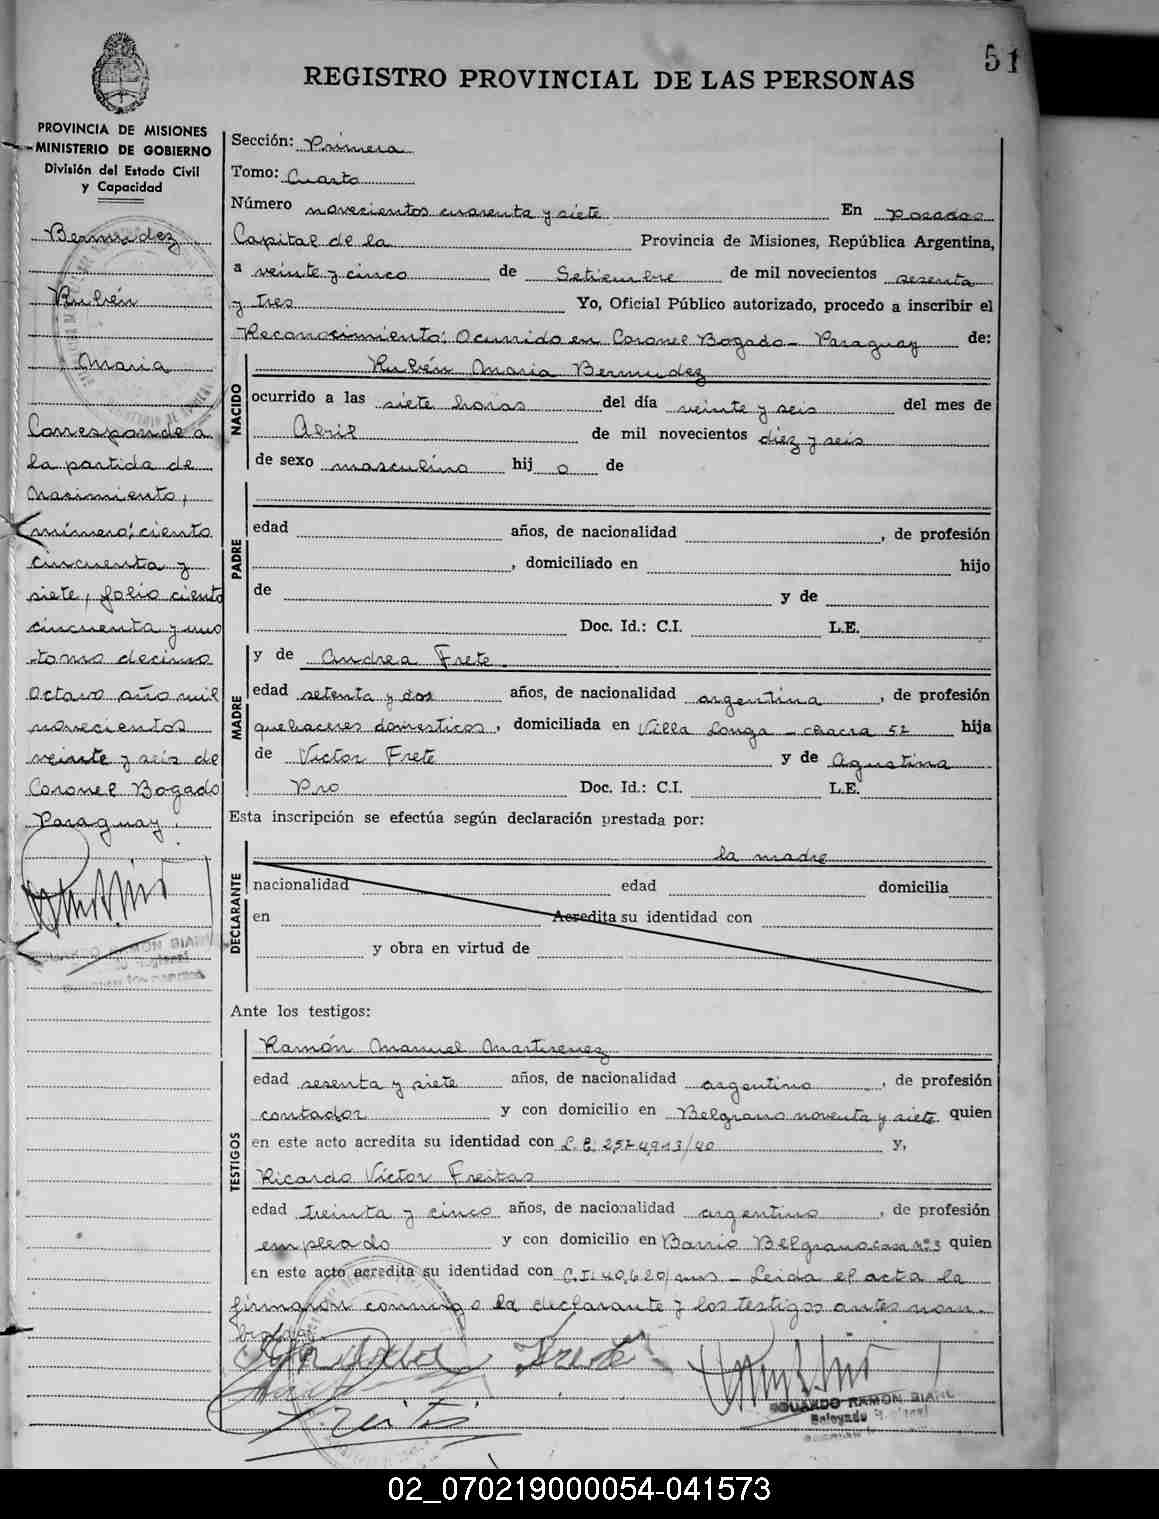 51
REGISTRO PROVINCIAL DE LAS PERSONAS
PROVINCIA DE MISIONES
MINISTERIO DE GOBIERNO
División del Estado Civil
y Capacidad
Bermudez
Rubén
Maria
Corresponde a
la partida de
Nacimiento,
número: ciento
cincuenta y
siete, folio ciento
cincuenta y uno
tomo decimo
octavo año mil
novecientos
veinte y seis de
Coronel Bogado
Paraguay.
Sección: Primera
Tomo: Cuarto
Número novecientos cuarenta y siete En Posadas
Capital de la Provincia de Misiones, República Argentina,
a veinte y cinco de Setiembre de mil novecientos sesenta
y tres Yo, Oficial Público autorizado, procedo a inscribir el
Reconocimiento: Ocurrido en Coronel Bogado - Paraguay de:
NACIDO
Rubén Maria Bermudez
ocurrido a las siete horas del día veinte y seis del mes de
Abril de mil novecientos diez y seis
de sexo masculino hij o de
PADRE
edad años, de nacionalidad , de profesión
, domiciliado en hijo
de y de
Doc. Id.: C.I. L.E.
MADRE
y de Andrea Frete.
edad setenta y dos años, de nacionalidad argentina , de profesión
quehaceres domesticos, domiciliada en Villa Longa - chacra 52 hija
de Victor Frete y de Agustina
Pro Doc. Id.: C.I. L.E.
Esta inscripción se efectúa según declaración prestada por:
DECLARANTE
la madre
nacionalidad edad domicilia
en Acredita su identidad con
y obra en virtud de
Ante los testigos:
TESTIGOS
Ramón Manuel Martirenez
edad sesenta y siete años, de nacionalidad argentino , de profesión
contador y con domicilio en Belgrano noventa y siete quien
en este acto acredita su identidad con L.E. y,
Ricardo Victor Freitas
edad treinta y cinco años, de nacionalidad argentino , de profesión
empleado y con domicilio en Barrio Belgrano casa nº 3 quien
en este acto acredita su identidad con C.I. 40.620/mns - Leida el acta la
firmaron conmigo la declarante y los testigos antes nom-
brados.
Frete
Freitas
EDUARDO RAMON BIANI
Delegado
02_070219000054-041573